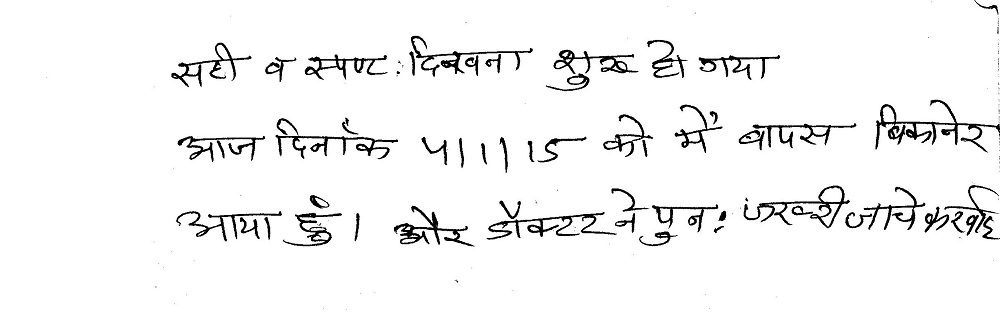 सही व स्पष्ट: दिखना शुरू हो गया
आज दिनाँक 5/1/15 को में वापस बिकानेर
आया हुं। और डॉक्टर ने पुन: जरूरी जाचे करवाई